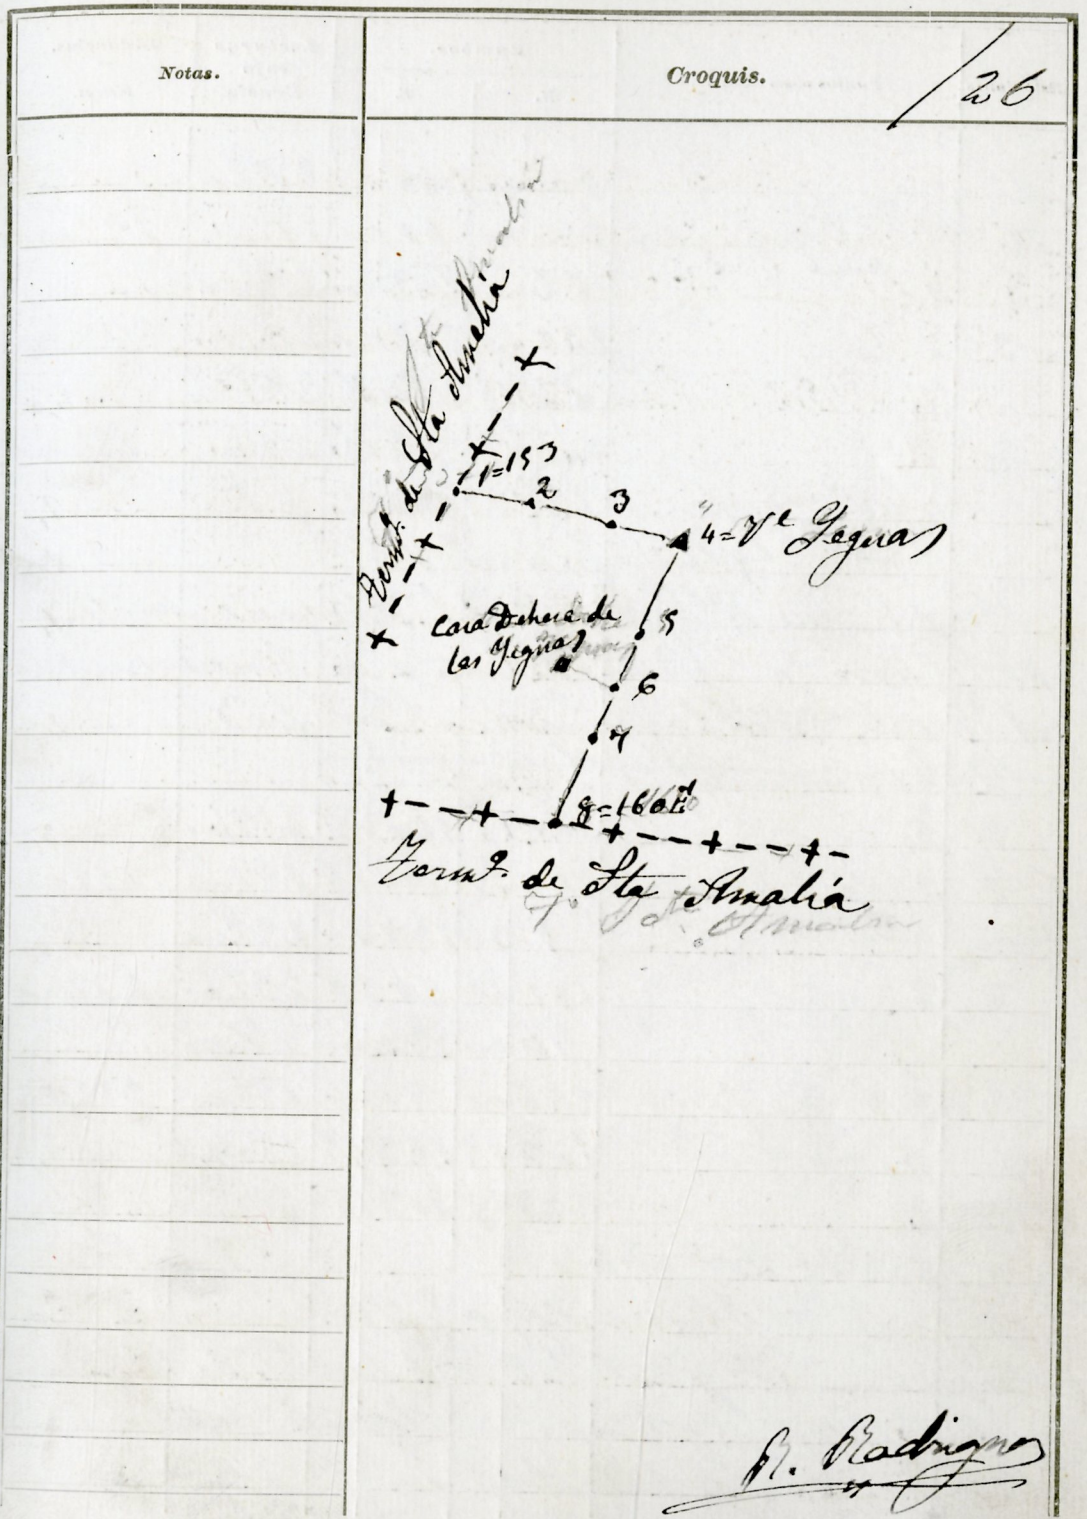 Notas.
Croquis.
/26
Term.º de Sta Amalia
1=153
2
3
4=Vе Yeguas
Casa Dehesa de
las Yeguas
5
6
7
8=160
Term.º de Sta Amalia
R. Rodriguez